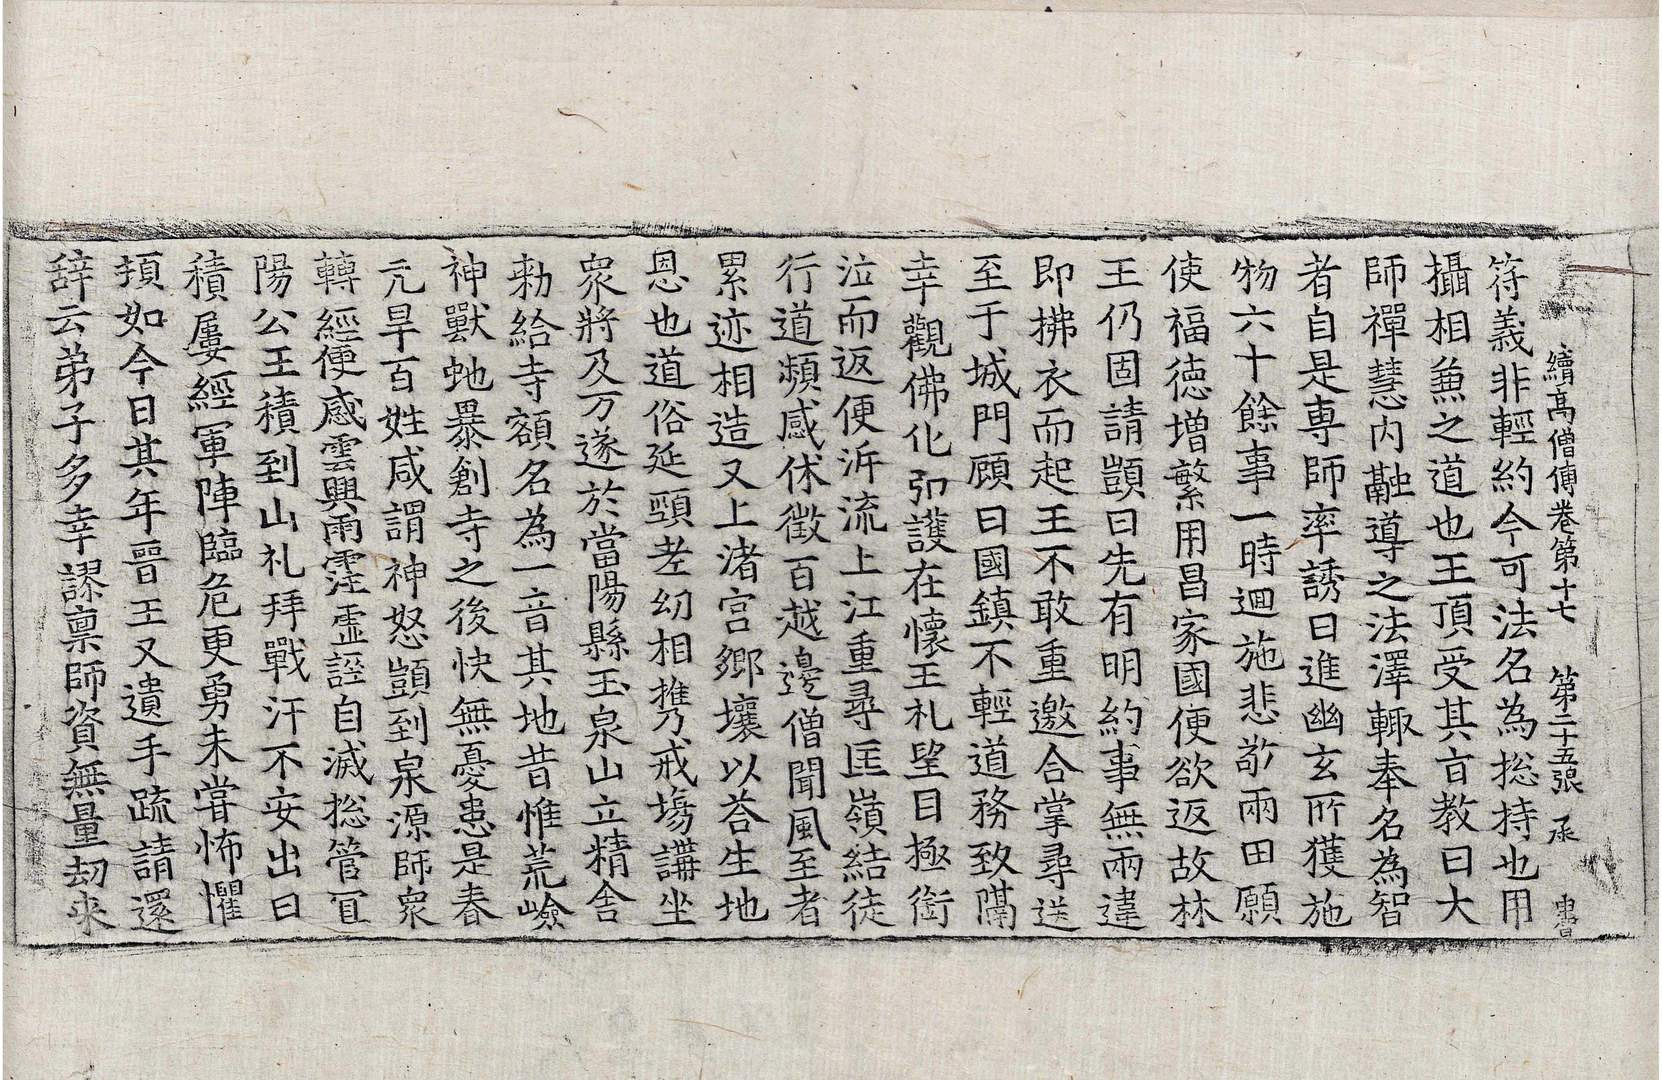 續高僧傳卷第十七 第二十五張 承
符義非輕約今可法名為捴持也用
攝相兼之道也王頂受其旨教曰大
師禪慧內融導之法澤輙奉名為智
者自是專師率誘日進幽玄所獲施
物六十餘事一時迴施悲敬兩田願
使福德增繁用昌家國便欲返故林
王仍固請顗曰先有明約事無兩違
即拂衣而起王不敢重邀合掌尋送
至于城門顧曰國鎮不輕道務致隔
幸觀佛化弘護在懷王礼望目極銜
泣而返便泝流上江重尋匡嶺結徒
行道頻感休徵百越邊僧聞風至者
累迹相造又上渚宮鄉壤以荅生地
恩也道俗延頸老幼相携戒場講坐
衆將及万遂於當陽縣玉泉山立精舍
勑給寺額名為一音其地昔惟荒嶮
神獸虵暴創寺之後快無憂患是春
亢旱百姓咸謂神怒顗到泉源師衆
轉經便感雲興雨霔虛謡自滅捴管冝
陽公王積到山礼拜戰汗不安出曰
積屢經軍陣臨危更勇未甞怖懼
頓如今日其年晉王又遺手疏請還
辭云弟子多幸謬禀師資無量劫来